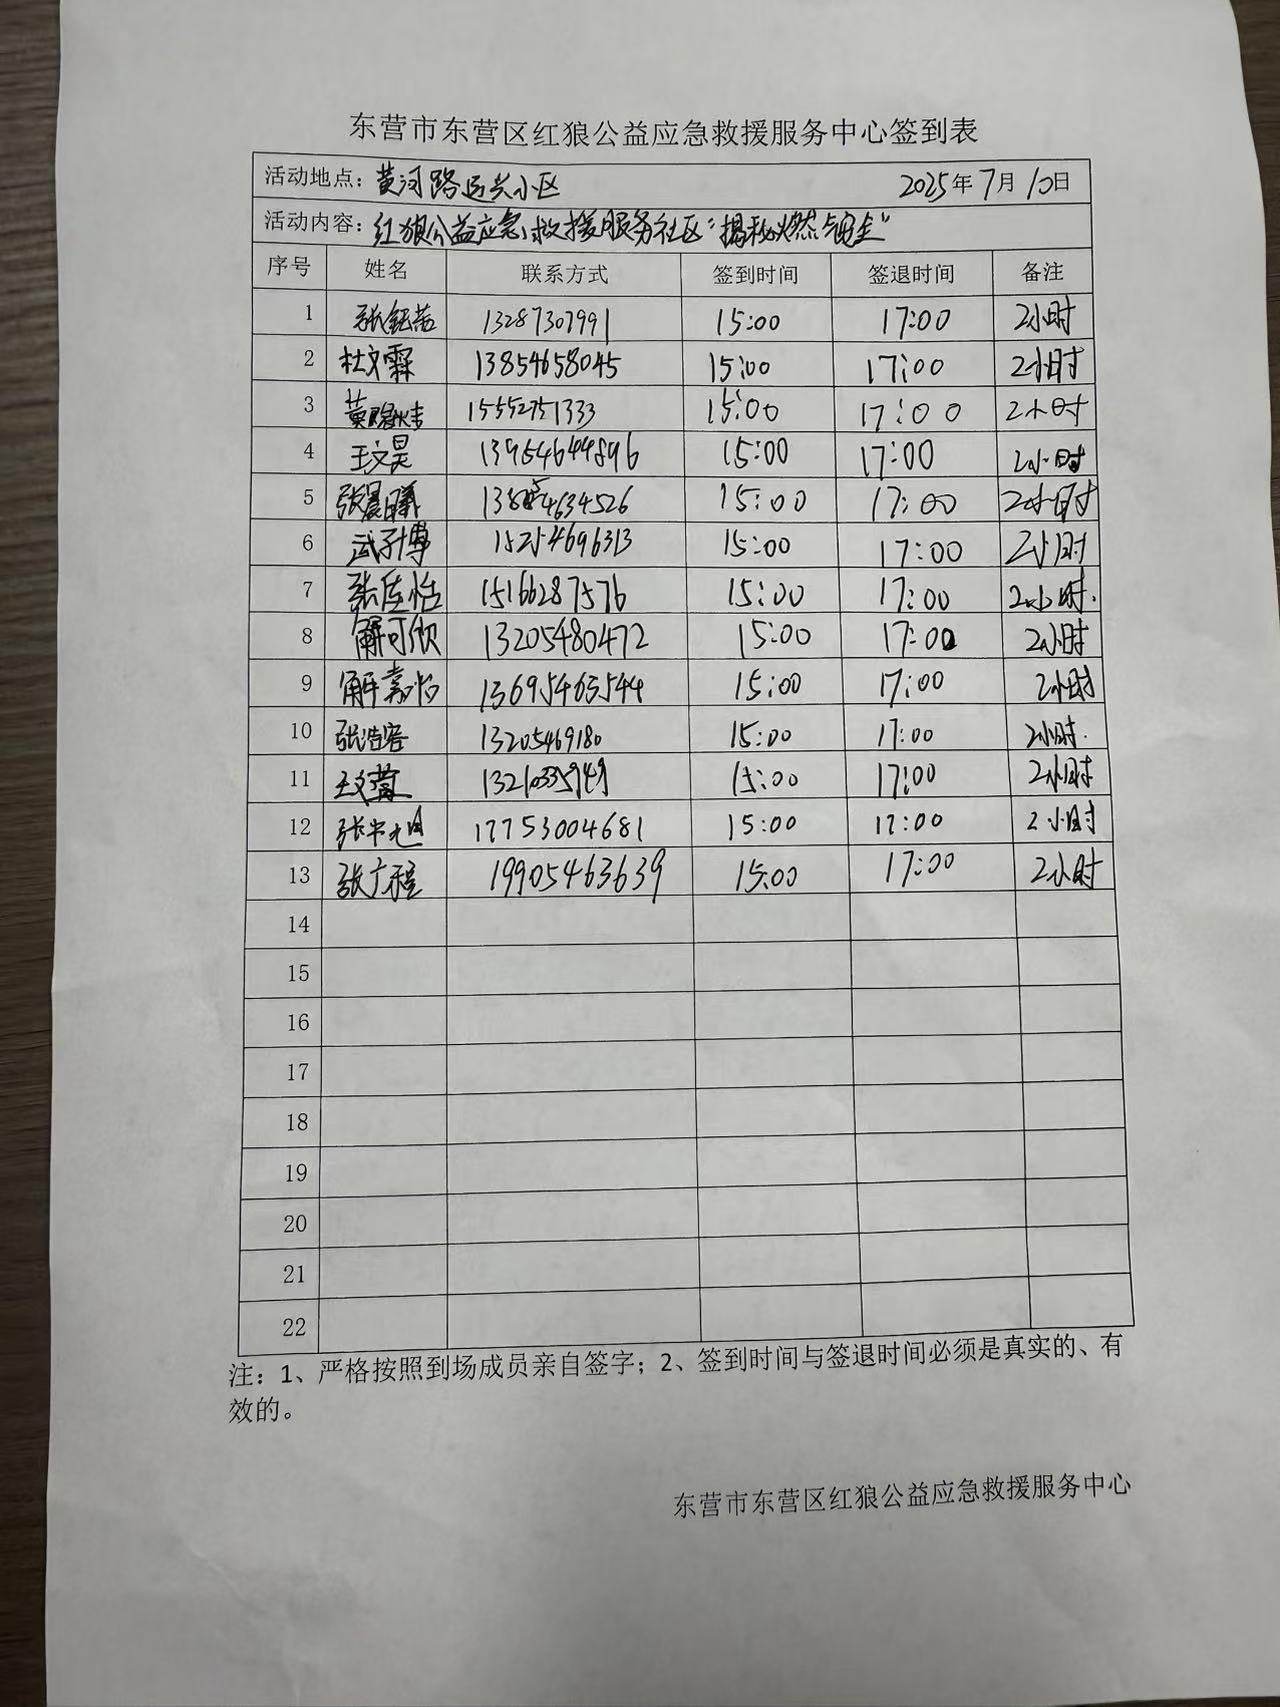 东营市东营区红狼公益应急救援服务中心签到表
活动地点：黄河路运兴小区 2025年7月10日
活动内容：红狼公益应急救援服务社区“揭秘燃气安全”
序号 姓名 联系方式 签到时间 签退时间 备注
1 13287307991 15:00 17:00 2小时
2 杜文霖 13854658045 15:00 17:00 2小时
3 15552751333 15:00 17:00 2小时
4 王文昊 13954644896 15:00 17:00 2小时
5 张晨曦 15:00 17:00 2小时
6 武子博 15254696313 15:00 17:00 2小时
7 15166287576 15:00 17:00 2小时
8 解可欣 13205480472 15:00 17:00 2小时
9 解嘉怡 13695463544 15:00 17:00 2小时
10 13205469180 15:00 17:00 2小时.
11 13210335949 15:00 17:00 2小时
12 17753004681 15:00 17:00 2小时
13 张广程 19905463639 15:00 17:00 2小时
14
15
16
17
18
19
20
21
22
注：1、严格按照到场成员亲自签字；2、签到时间与签退时间必须是真实的、有
效的。
东营市东营区红狼公益应急救援服务中心